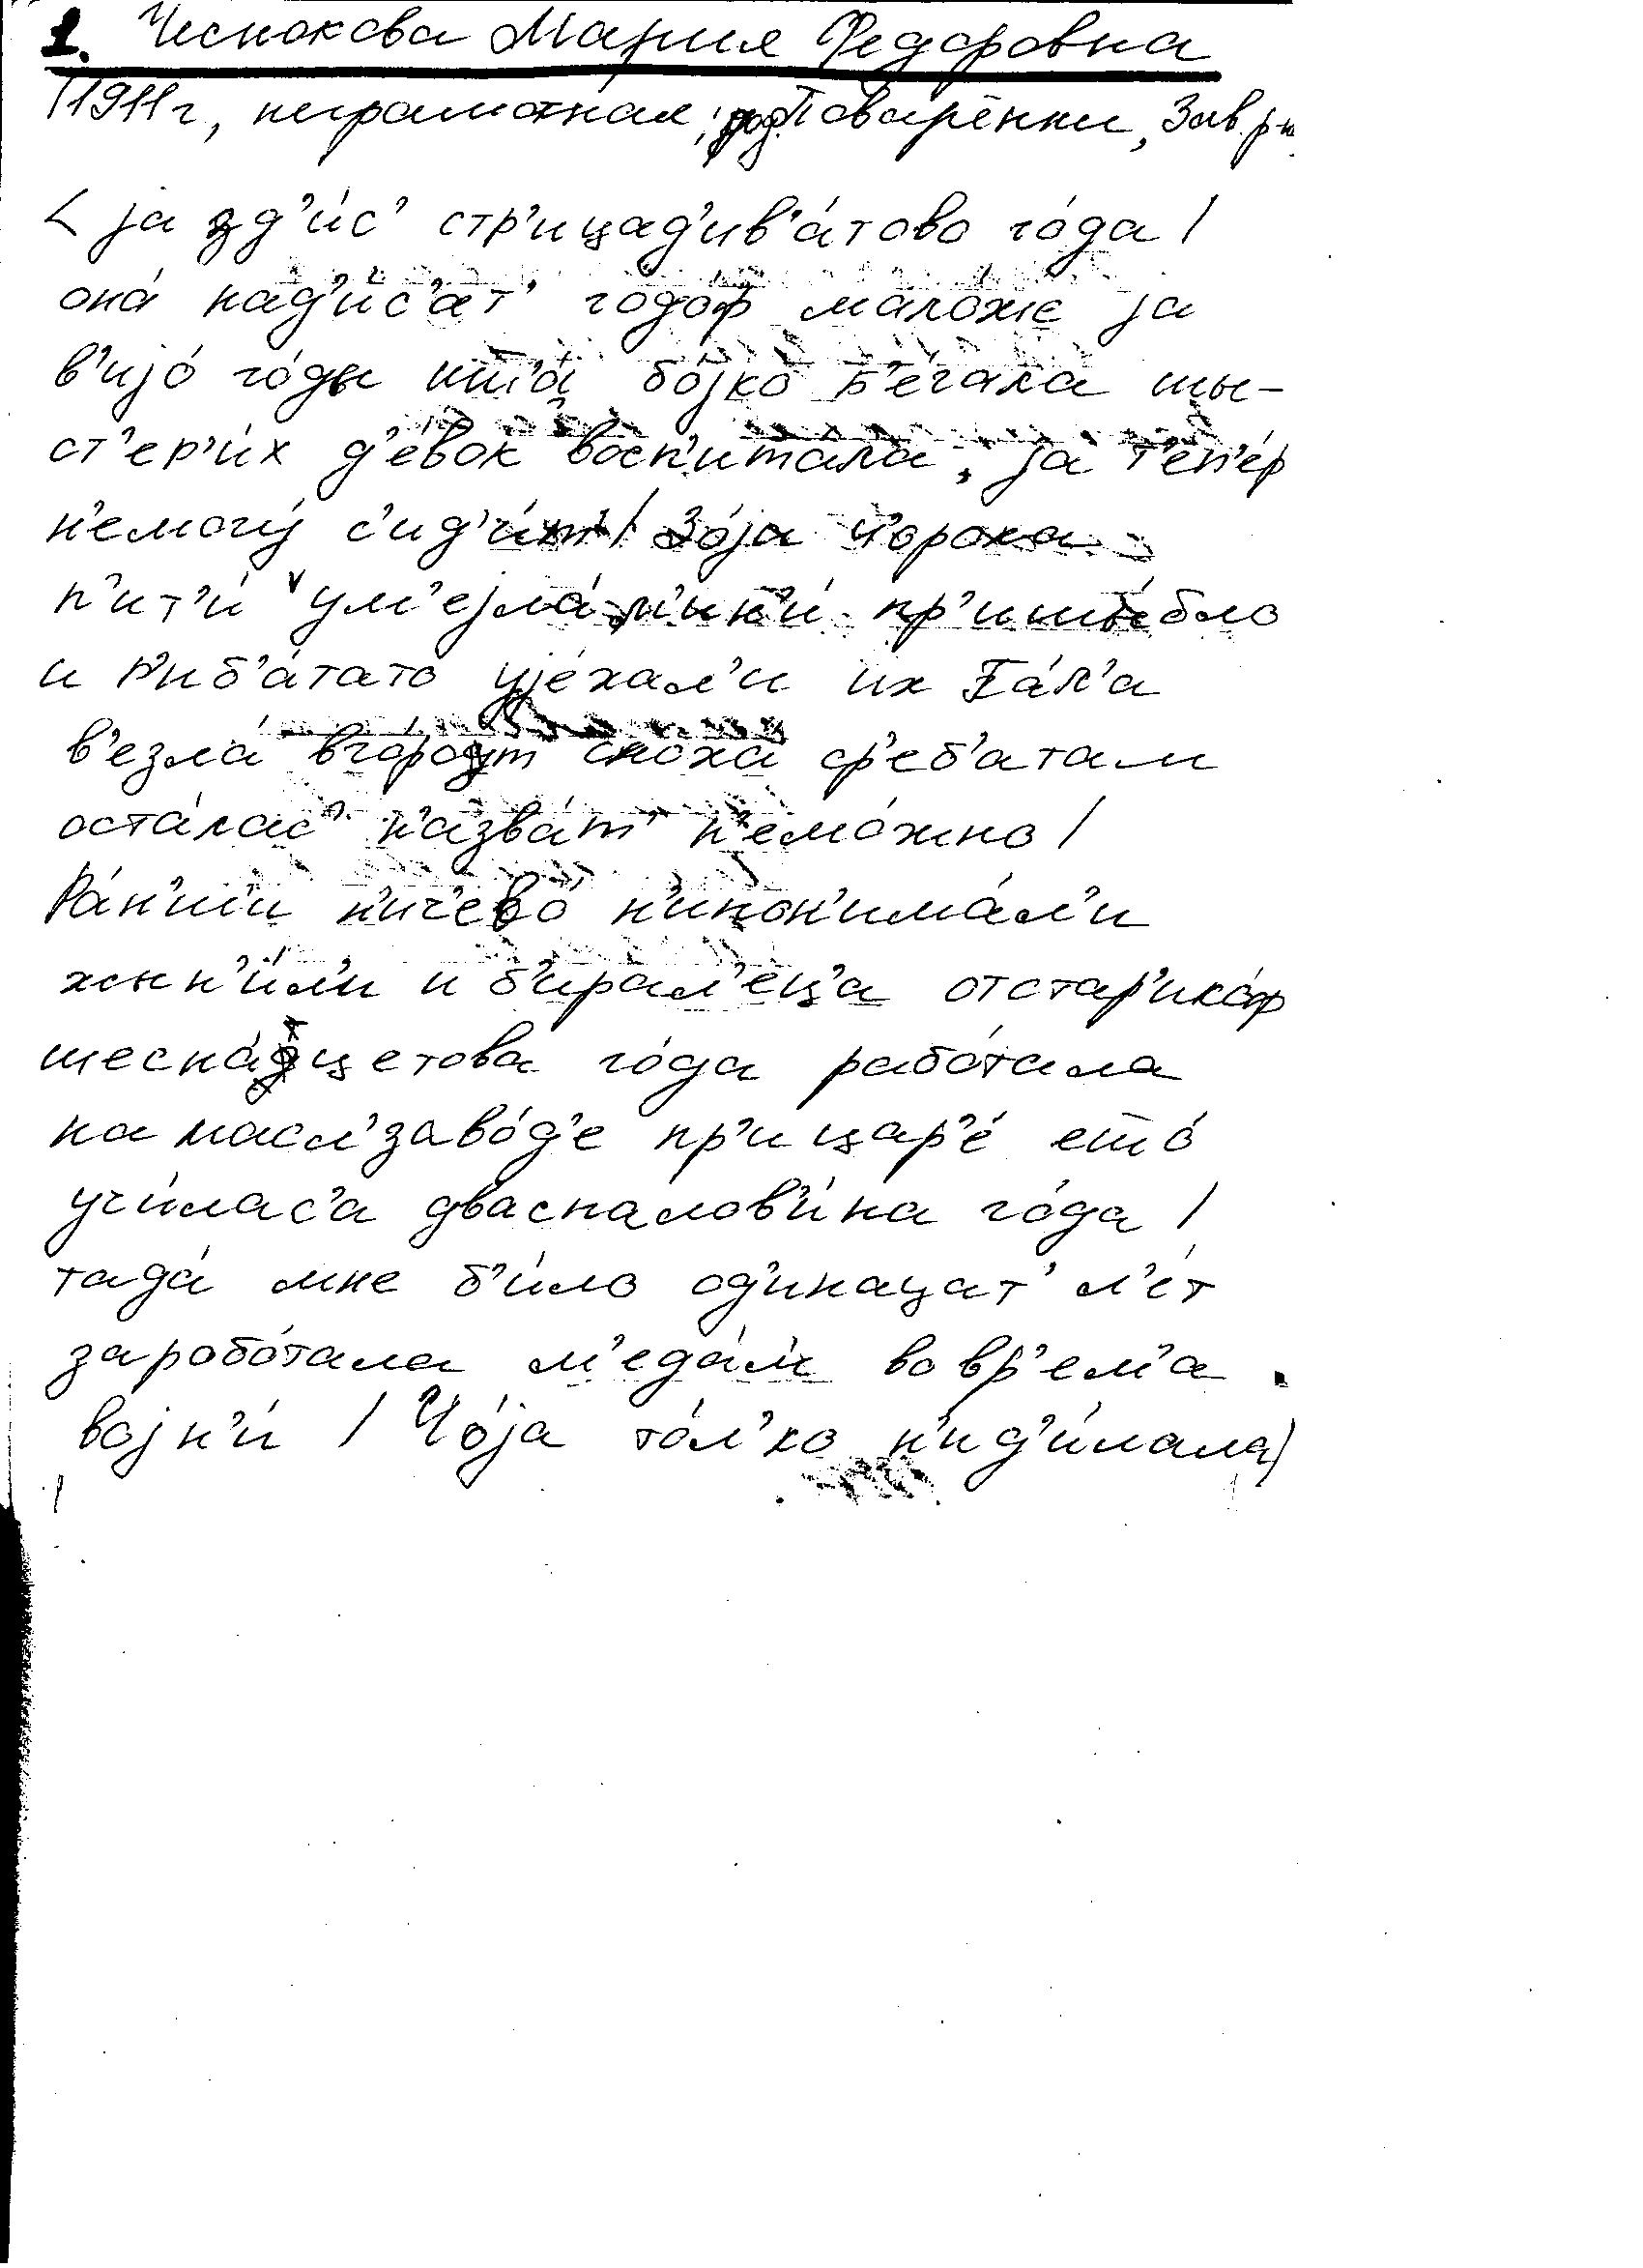 1. Чеснокова Мария Федоровна
1911г, неграмотная, род. Поварёнки, Зав. р-н
< jа зд'и́с' стр'ицад'ив'а́тово го́да /
она́ над'и́с'ат' годо́ф мало́же jа
в'иjо́ го́ды бо́јко б'е́гала шы-
ст'ер'и́х д'е́вок восп'ита́ла, jа т'еп'е́р
н'емогу́ с'ид'и́т' / Зо́jа
п'ит'и́ ум'ејла́ м'ин'и́ пр'ишы́бло
и р'иб'а́тато уjе́хал'и их Га́л'а
в'езла́ вго́рот сноха́ ср'еб'атам
оста́лас' н'азва́т' н'емо́жно /
Ра́н'ш'и н'ич'ево́ н'ипон'има́л'и
жын'и́л'и и б'ирал'ец'а отстар'ико́ф
шесна́тцетова го́да рабо́тала
на масл'заво́д'е пр'ицар'е́ ешо́
учи́лас'а дваспалов'и́на го́да /
тада́ мне б'и́ло од'инацат' л'ет
заробо́тала м'еда́л' вовр'ем'а
воjн'и́ / Чо́jа то́л'ко н'ид'и́лала /